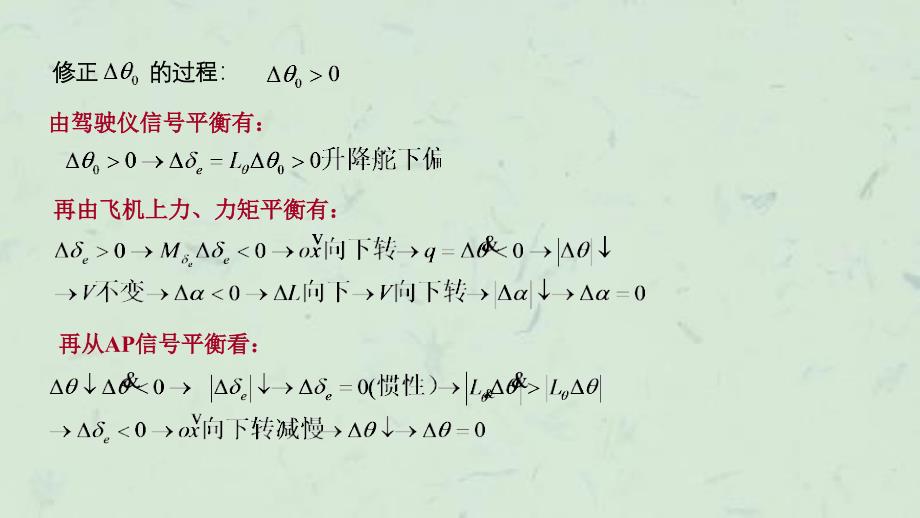 修正 Δθ₀ 的过程： Δθ₀ > 0
由驾驶仪信号平衡有：
Δθ₀ > 0 → Δδₑ = L_θΔθ₀ > 0升降舵下偏
再由飞机上力、力矩平衡有：
Δδₑ > 0 → M_δₑΔδₑ < 0 → ox^v向下转→ q = Δθ& < 0 → |Δθ|↓
→ V不变→ Δα < 0 → ΔL向下→ V向下转→ |Δα|↓→ Δα = 0
再从AP信号平衡看：
Δθ↓ Δθ& < 0 → |Δδₑ|↓→ Δδₑ = 0(惯性）→ |L_θ&Δθ&| > |L_θΔθ|
→ Δδₑ < 0 → ox^v向下转减慢→ Δθ↓→ Δθ = 0